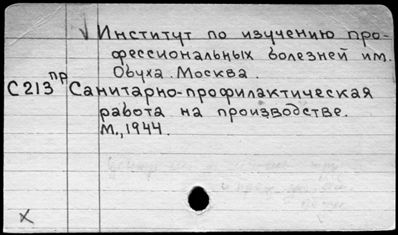 √ Институт по изучению про-
фессиональных болезней им.
Обуха. Москва.
С213пр Санитарно-профилактическая
работа на производстве.
М., 1944.
х